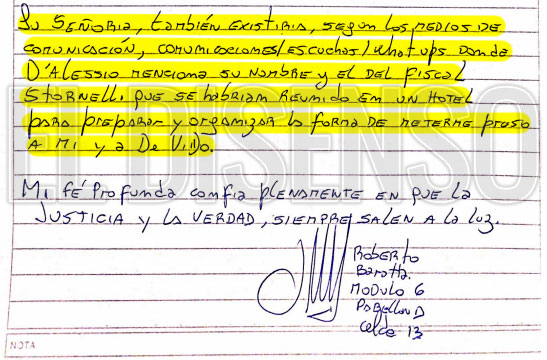 Su SEÑORIA, también EXISTIRIA, según LOS MEDIOS DE
COMUNICACIÓN, COMUNICACIONES/ESCUCHAS/Whatups DONDE
D'ALESSIO MENCIONA SU NOMBRE y EL DEL FISCAL
STORNELLI QUE SE habriam REUNIDO EN UN HOTEL
para preparar y organizar la forma DE METERME preso
A MI y a De Vido.
EL DISENSO
MI FÉ PROFUNDA confía PLENAMENTE EN QUE LA
JUSTICIA y LA VERDAD, SIEMPRE SALEN A la luz.
Roberto
Baratta.
MODULO 6
PABELLON D
Celda 13
NOTA